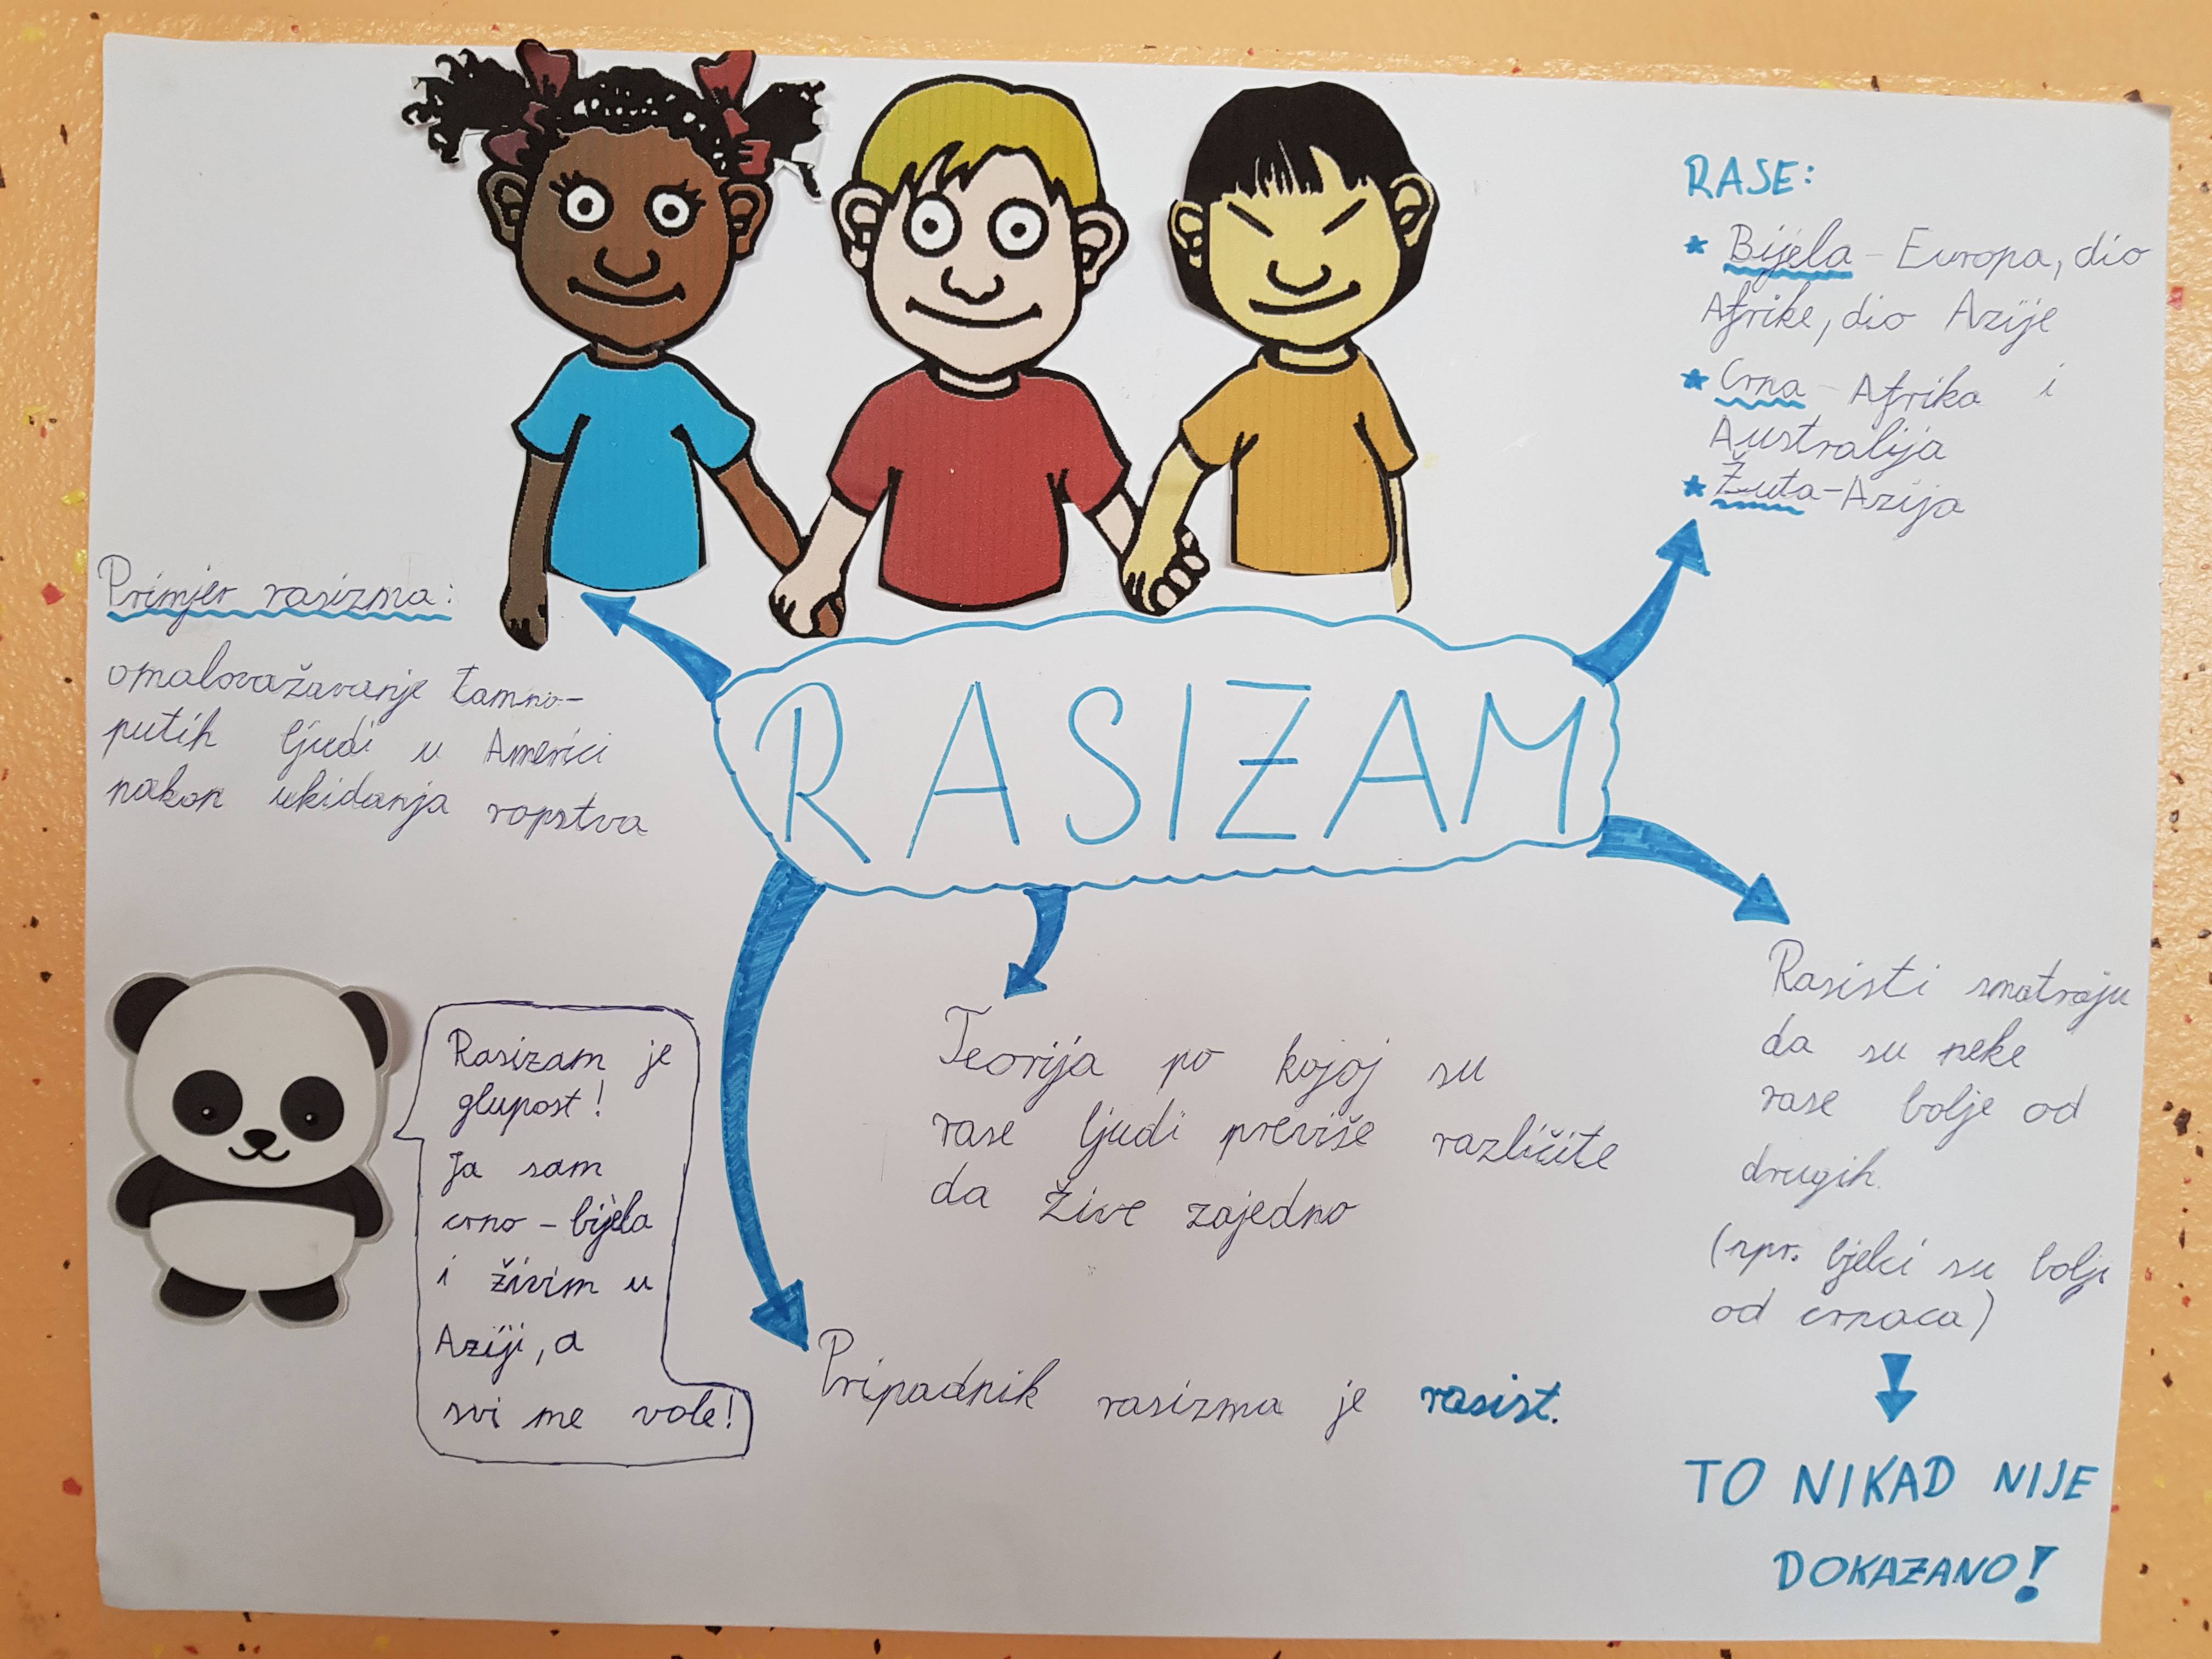 RASE:
* Bijela - Europa, dio
Afrike, dio Azije
* Crna - Afrika i
Australija
* Žuta - Azija
Primjer rasizma:
omalovažavanje tamno-
putih ljudi u Americi
nakon ukidanja ropstva
RASIZAM
Rasisti smatraju
da su neke
rase bolje od
drugih.
(npr. bjelci su bolji
od crnaca)
TO NIKAD NIJE
DOKAZANO!
Teorija po kojoj su
rase ljudi previše različite
da žive zajedno
Pripadnik rasizma je rasist.
Rasizam je
glupost!
Ja sam
crno-bijela
i živim u
Aziji, a
svi me vole!